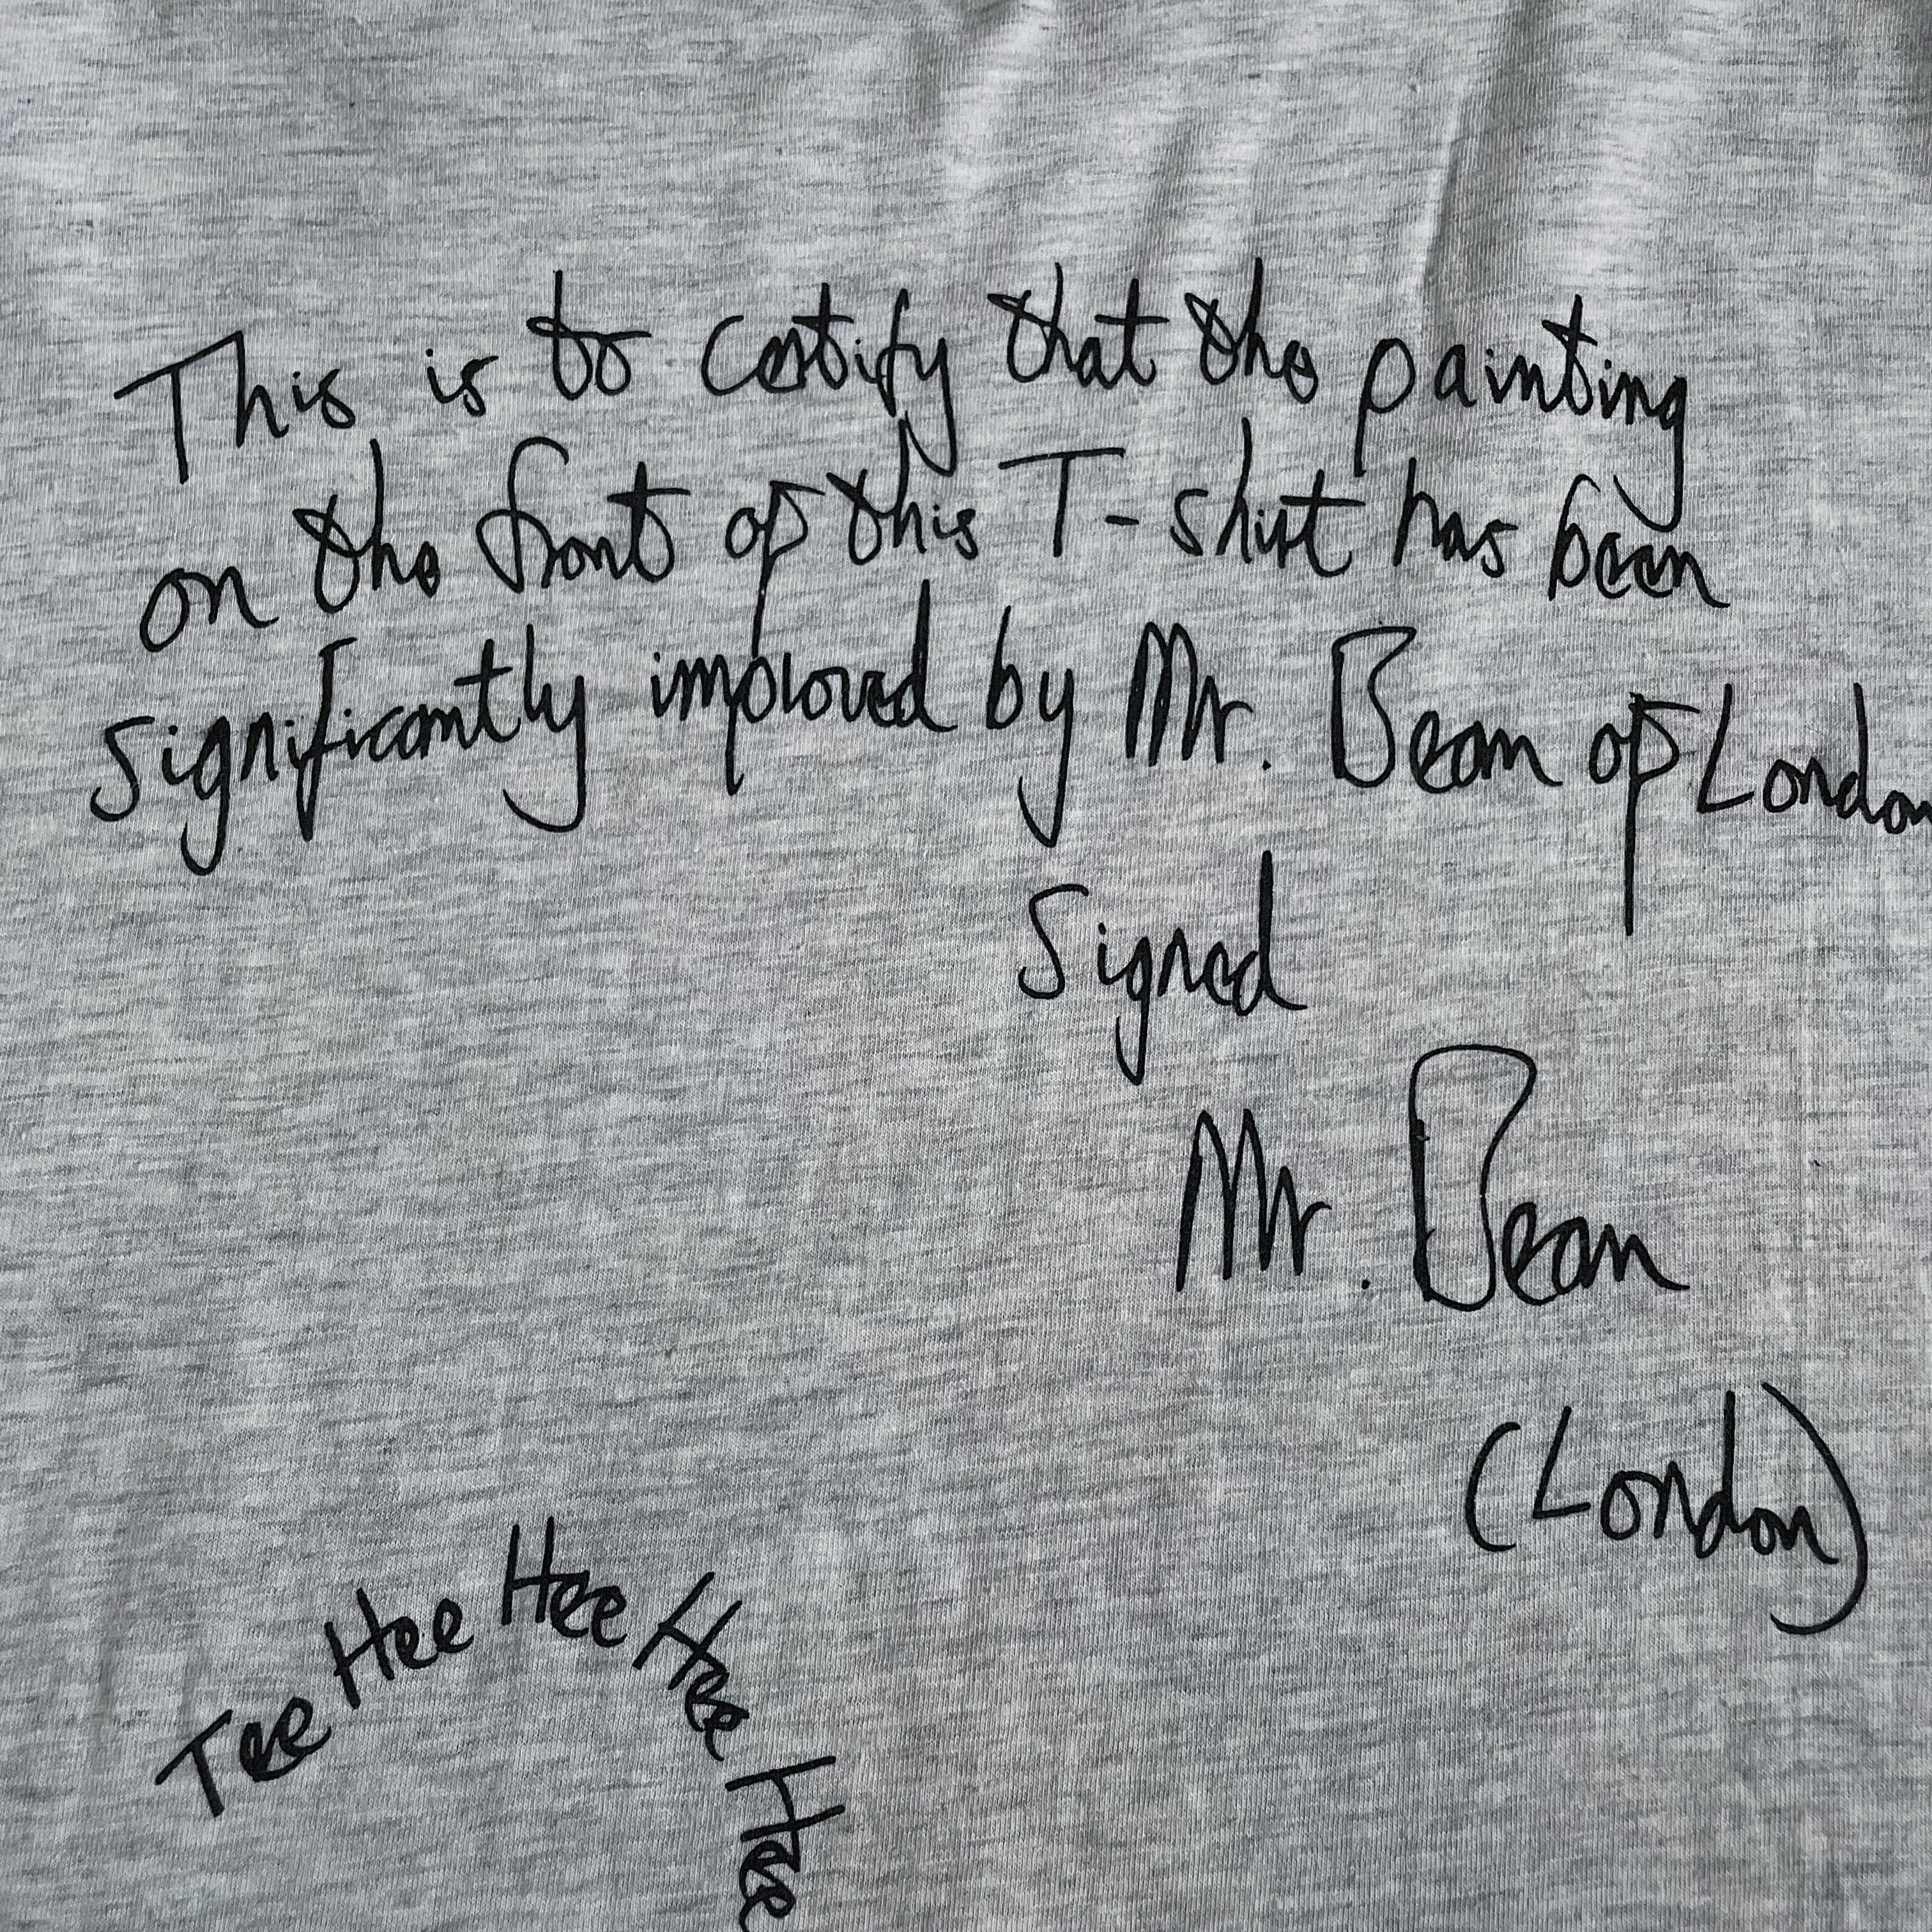 This is to certify that the painting
on the front of this T-shirt has been
significantly improved by Mr. Bean of London
Signed
Mr. Bean
(London)
Tee Hee Hee Hee Hee